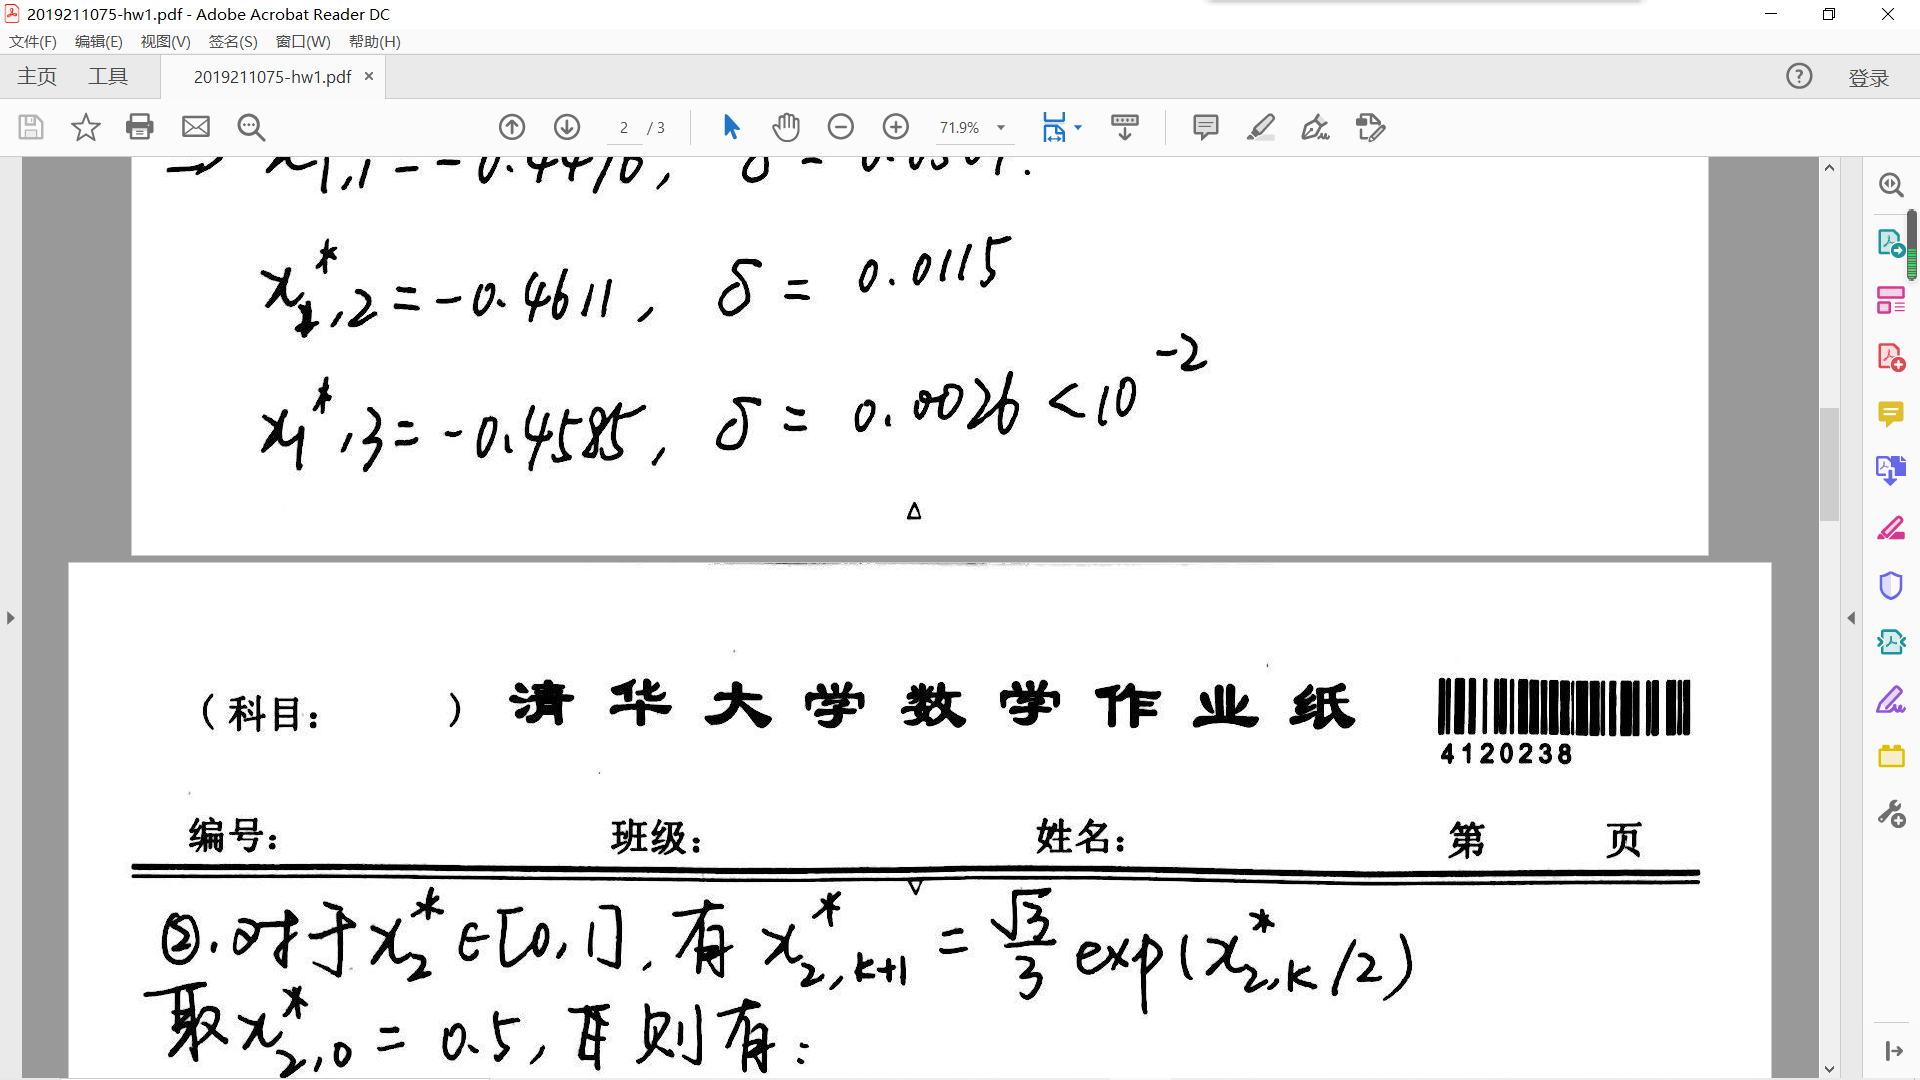 2019211075-hw1.pdf - Adobe Acrobat Reader DC
文件(F) 编辑(E) 视图(V) 签名(S) 窗口(W) 帮助(H)
主页 工具 2019211075-hw1.pdf × 登录
2 / 3 71.9%
x₂*,₂ = -0.4611, δ = 0.0115
x₁*,3 = -0.4585, δ = 0.0026 < 10⁻²
(科目: ) 清华大学数学作业纸
4120238
编号: 班级: 姓名: 第 页
②. 对于 x₂* ∈ [0,1], 有 x*₂,ₖ₊₁ = √3/3 exp(x*₂,ₖ/2)
取 x*₂,₀ = 0.5, 则有: